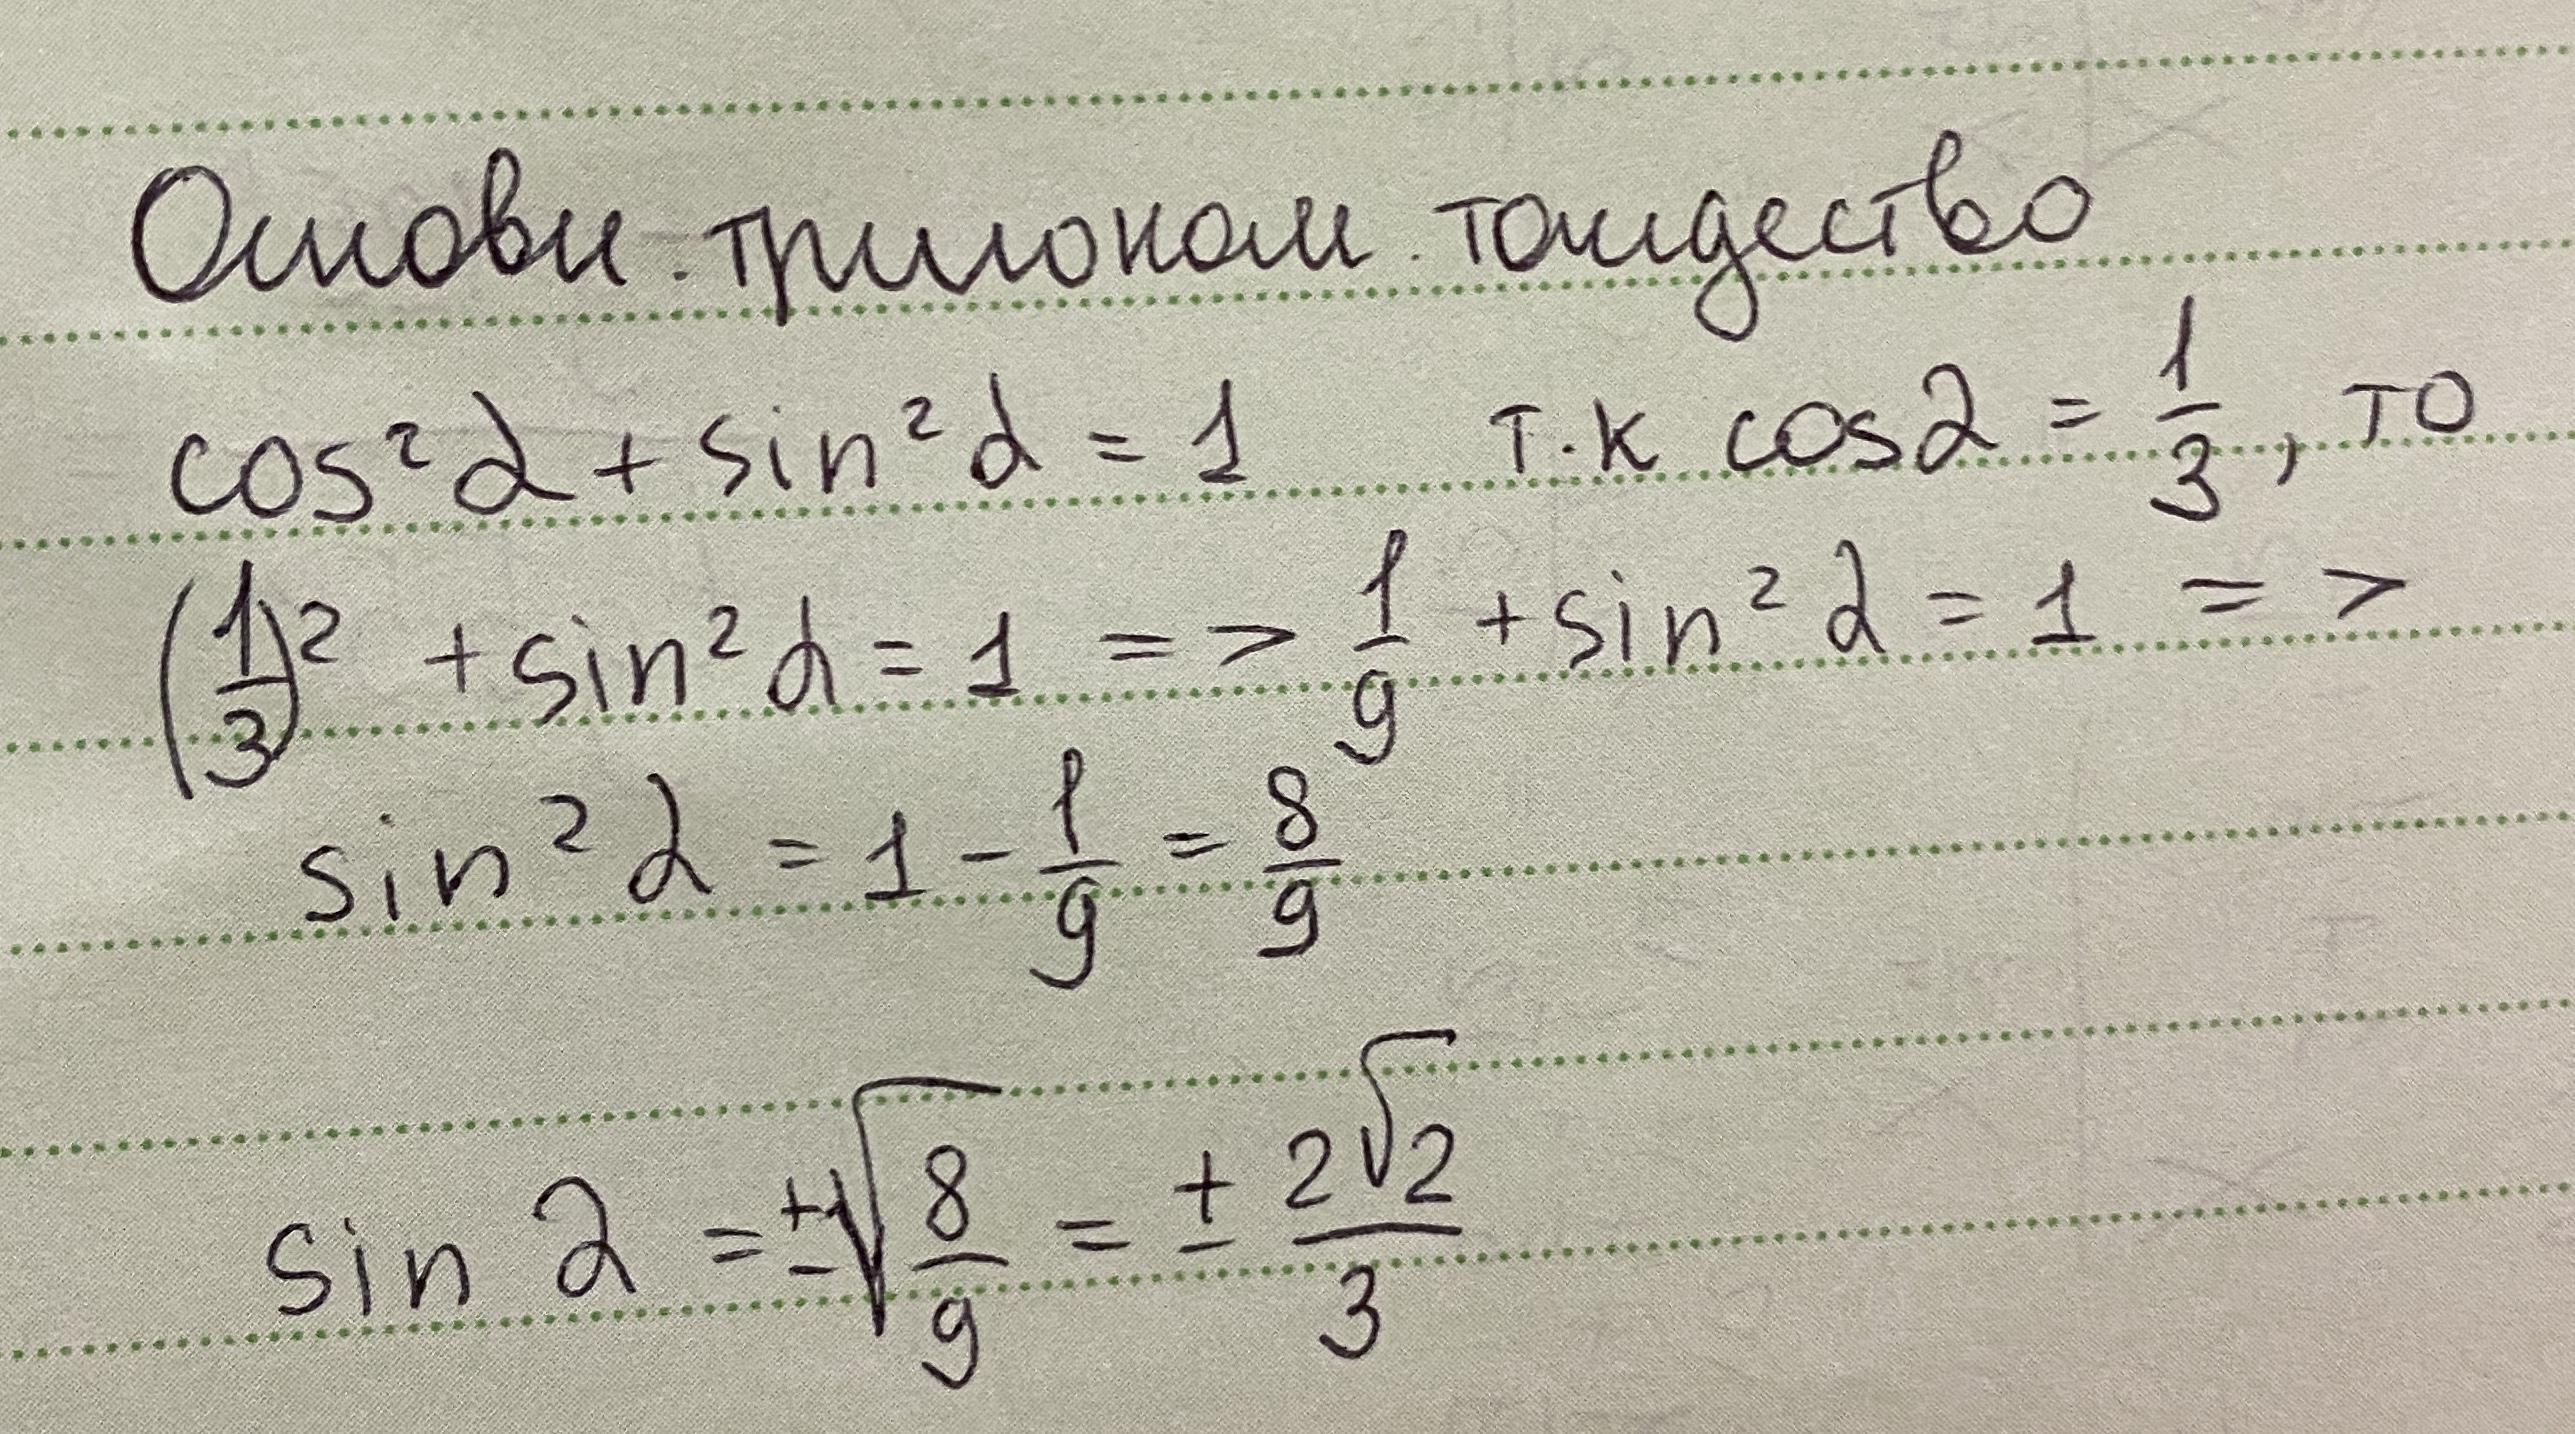 Основн. тригоном. тождество
cos²α + sin²α = 1 т.к cosα = 1/3, то
(1/3)² + sin²α = 1 => 1/9 + sin²α = 1 =>
sin²α = 1 - 1/9 = 8/9
sin α = ±√(8/9) = ± 2√2/3